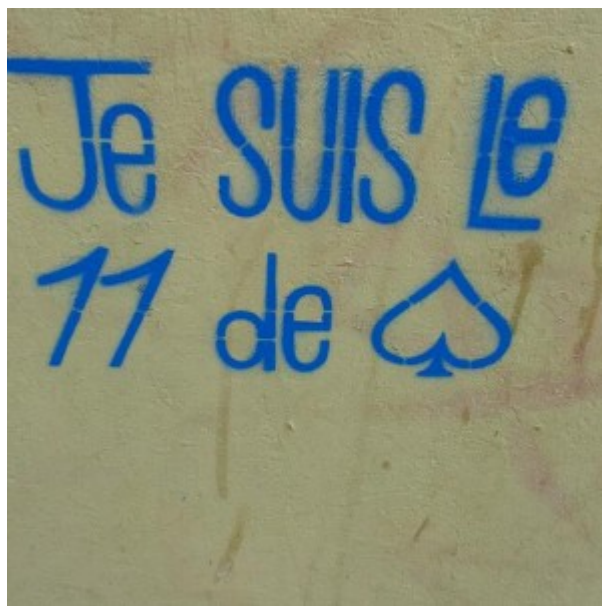 Je SUIS Le
11 de ♠